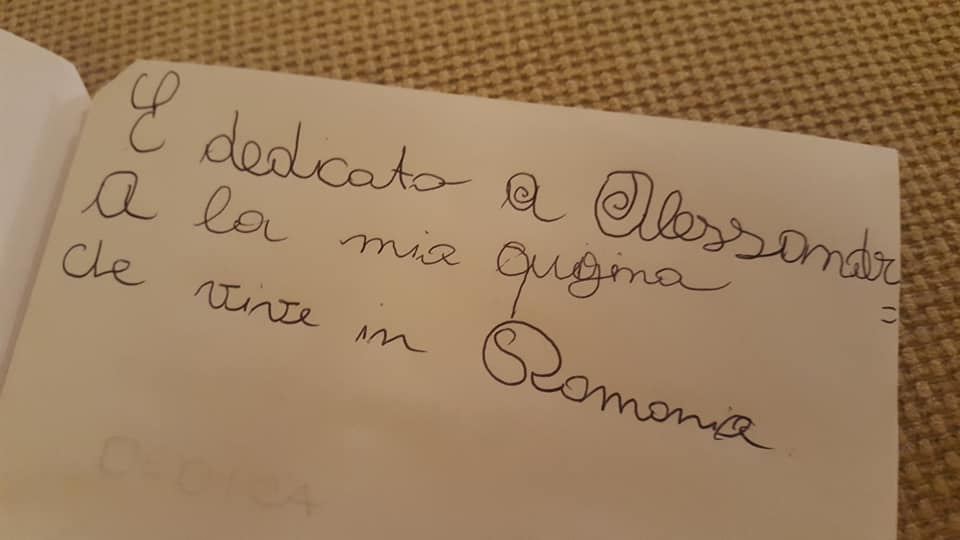 E dedicato a Alessandr=
A la mia qugina
che vive in Romania
DEDICA